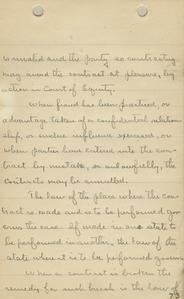 is invalid and the party so contracting
may avoid the contract at pleasure, by
action in Court of Equity.
When fraud has been practised, or
advantage taken of a confidential relation
ship, or undue influence exercised, or
when parties have entered into the con-
tract by mistake, or unlawfully, the
contracts may be annulled.
The law of the place where the con-
tract is made and is to be performed gov
erns the case. If made in one state to
be performed in another, the law of the
state where it is to be performed governs
When a contract is broken the
remedy for such breach is the law of